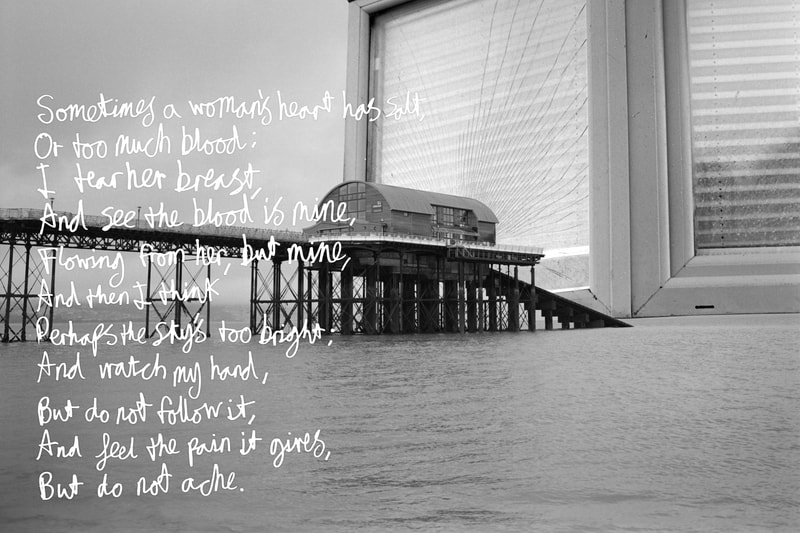 Sometimes a woman's heart has salt,
Or too much blood;
I tear her breast,
And see the blood is mine,
Flowing from her, but mine,
And then I think
Perhaps the sky's too bright,
And watch my hand,
But do not follow it,
And feel the pain it gives,
But do not ache.